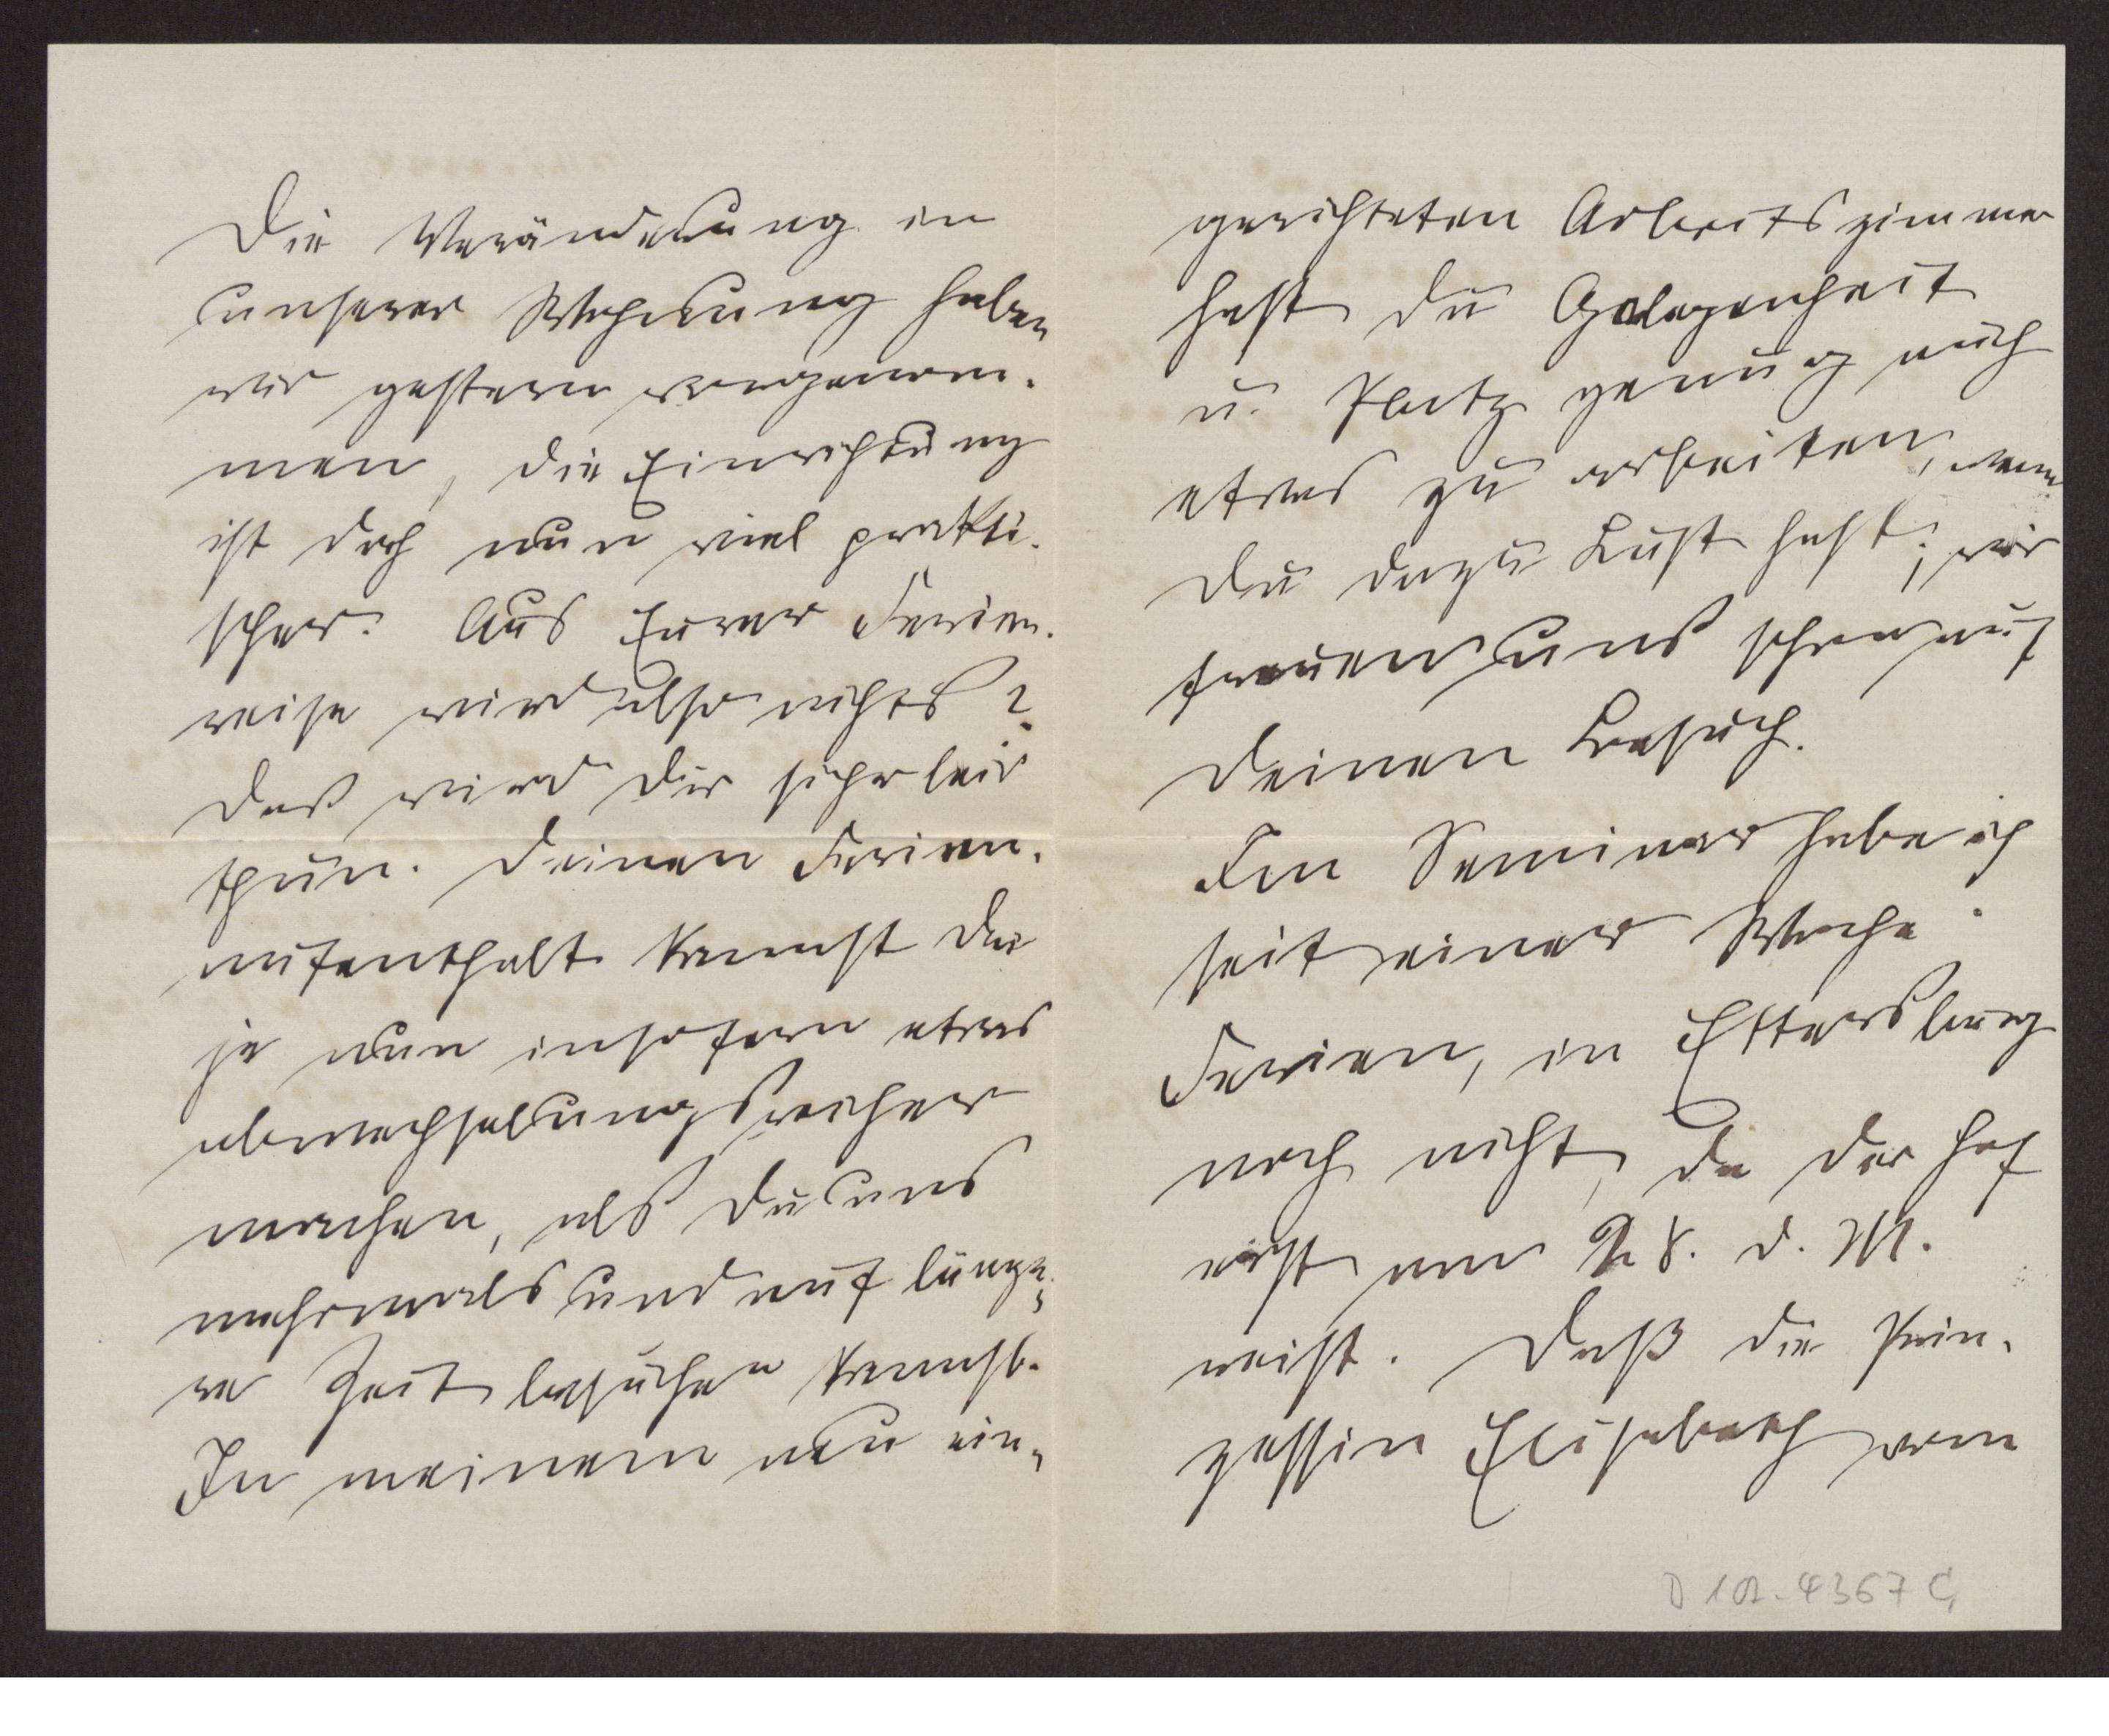 Die Veränderung in
unserer Wohnung haben
wir gestern vorgenom-
men, die Einrichtung
ist doch nun viel prakti-
scher. Aus Eurer Ferien-
reise wird also nichts?
Das wird Dir sicher leid
thun. Deinen Ferien-
aufenthalt kannst Du
ja nun insofern etwas
abwechselungsreicher
machen, als Du uns
mehrmals und auf länge-
re Zeit besuchen kannst.
In meinem neu ein-
gerichteten Arbeitszimmer
hast Du Gelegenheit
u. Platz genug auch
etwas zu arbeiten, wenn
Du dazu Lust hast; wir
freuen uns schon auf
Deinen Besuch.
Im Seminar habe ich
seit einer Woche
Ferien, in Ettersburg
noch nicht, da der Hof
erst am 28. d. M.
reist. Daß die Prin-
zessin Elisabeth vom
D 102. 4367 C,